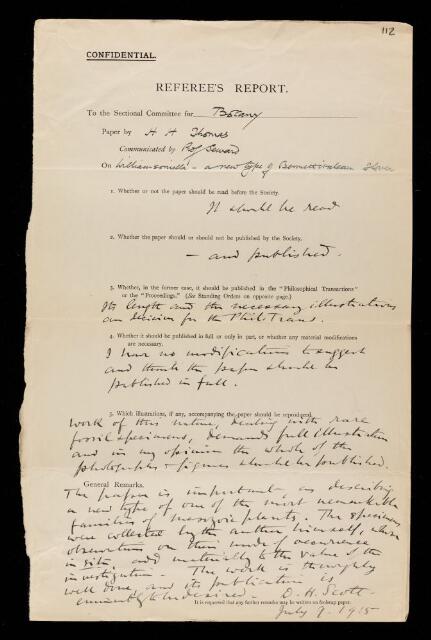 112
CONFIDENTIAL.
REFEREE'S REPORT.
To the Sectional Committee for Botany
Paper by H H Thomas
Communicated by Prof Seward
On Williamsoniella - a new type of Bennettitalean Flower
1. Whether or not the paper should be read before the Society.
It should be read
2. Whether the paper should or should not be published by the Society.
- and published.
3. Whether, in the former case, it should be published in the "Philosophical Transactions"
or the "Proceedings." (See Standing Orders on opposite page.)
Its length and the necessary illustrations
are decisive for the Phil. Trans.
4. Whether it should be published in full or only in part, or whether any material modifications
are necessary.
I have no modifications to suggest
and think the paper should be
published in full.
5. Which illustrations, if any, accompanying the paper should be reproduced.
Work of this nature, dealing with rare
fossil specimens, demands full illustration
and in my opinion the whole of the
photographs & figures should be published.
General Remarks.
The paper is important, as describing
a new type of one of the most remarkable
families of mesozoic plants. The specimens
were collected by the author himself, whose
observations on their mode of occurrence
in situ, add materially to the value of the
investigation. The work is thoroughly
well done, and its publication is
eminently to be desired. D. H. Scott.
It is requested that any further remarks may be written on foolscap paper.
July 9. 1915